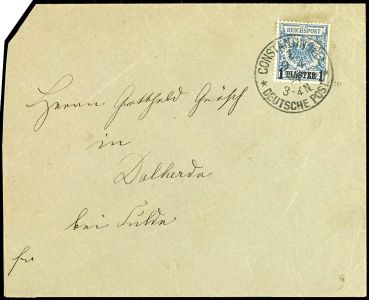 REICHSPOST
1 PIASTER 1
CONSTANTINOPEL
3-4N
* DEUTSCHE POST *
Herrn Gotthold
in
Dalherda
bei Fulda